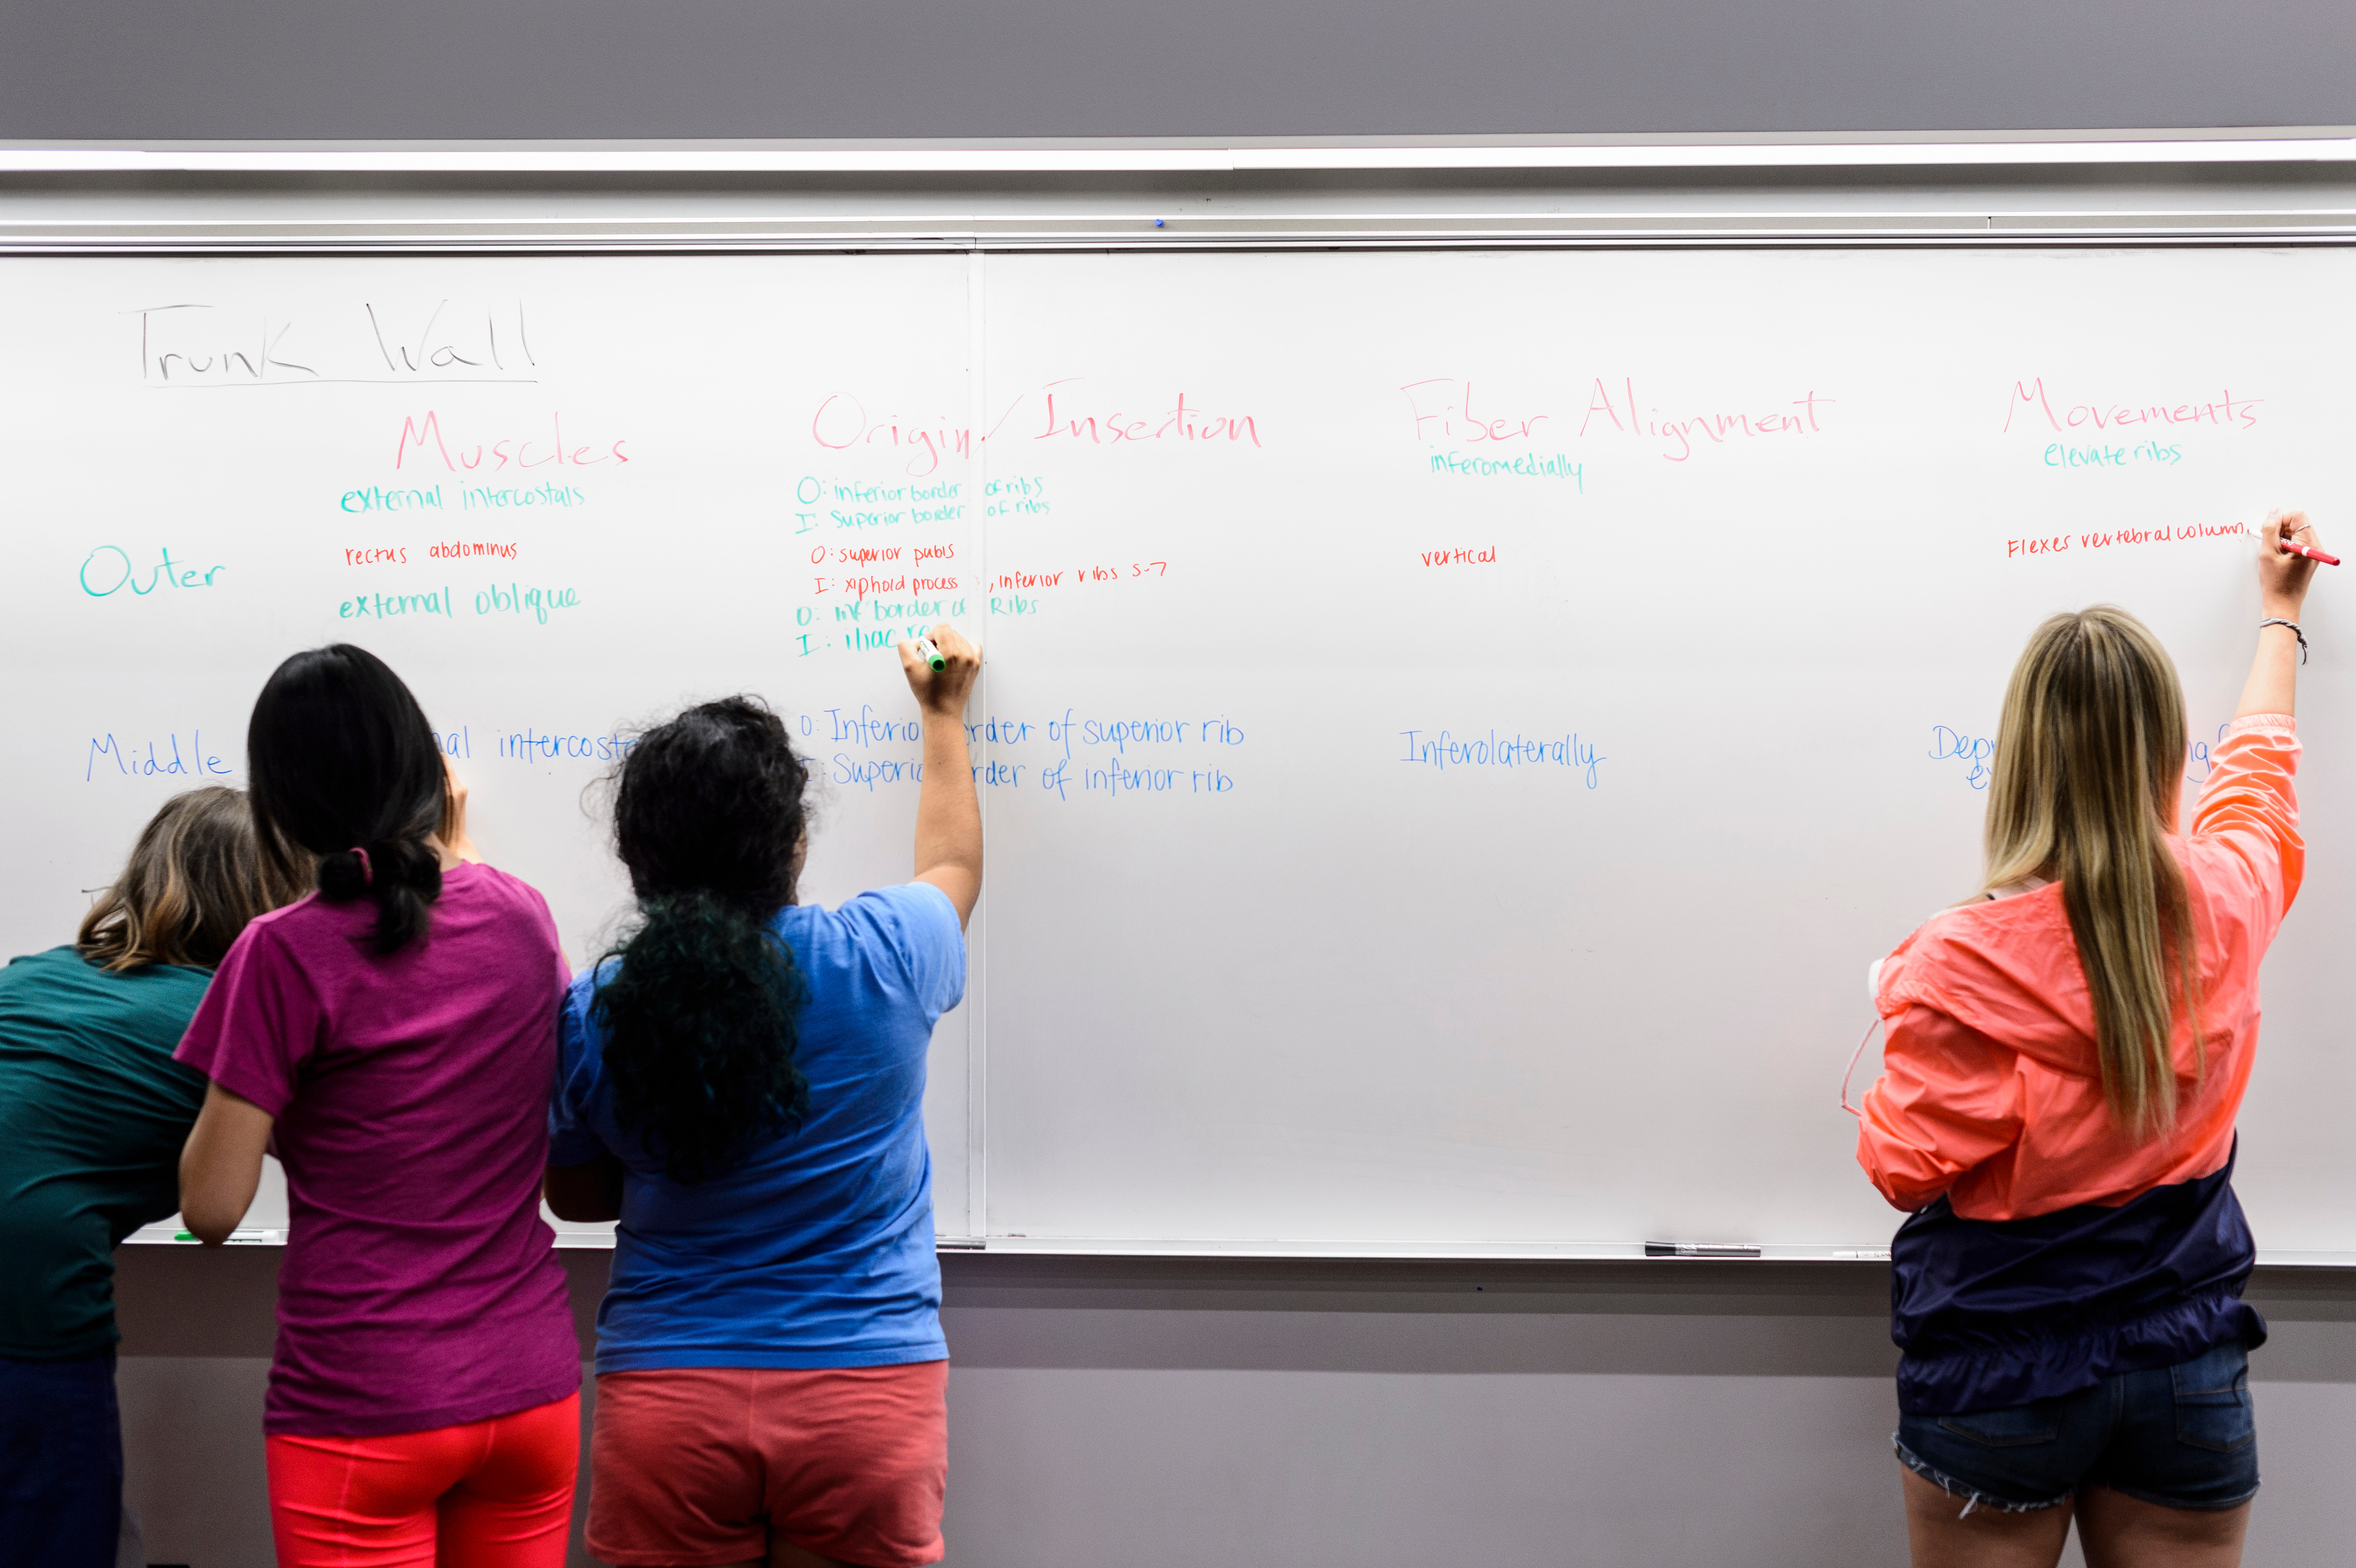 Trunk Wall
Muscles Origin/Insertion Fiber Alignment Movements
external intercostals O: inferior border of ribs inferomedially elevate ribs
I: Superior border of ribs
Outer rectus abdominus O: superior pubis vertical Flexes vertebral column,
I: xiphoid process , inferior ribs 5-7
external oblique O: inf border of Ribs
I: iliac
Middle intercost O: Inferio rder of superior rib Inferolaterally
I: Superio rder of inferior rib